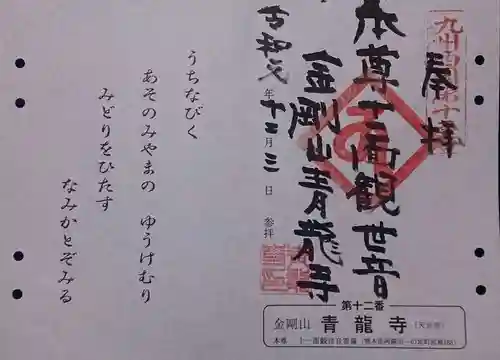 九州西国第十二番
奉拝
本尊十一面観世音
金剛山青龍寺
令和元年十二月三日 参拝
第十二番
金剛山 青龍寺 (天台宗)
本尊 十一面観世音菩薩
うちなびく
あそのみやまの ゆうけむり
みどりをひたす
なみかとぞみる